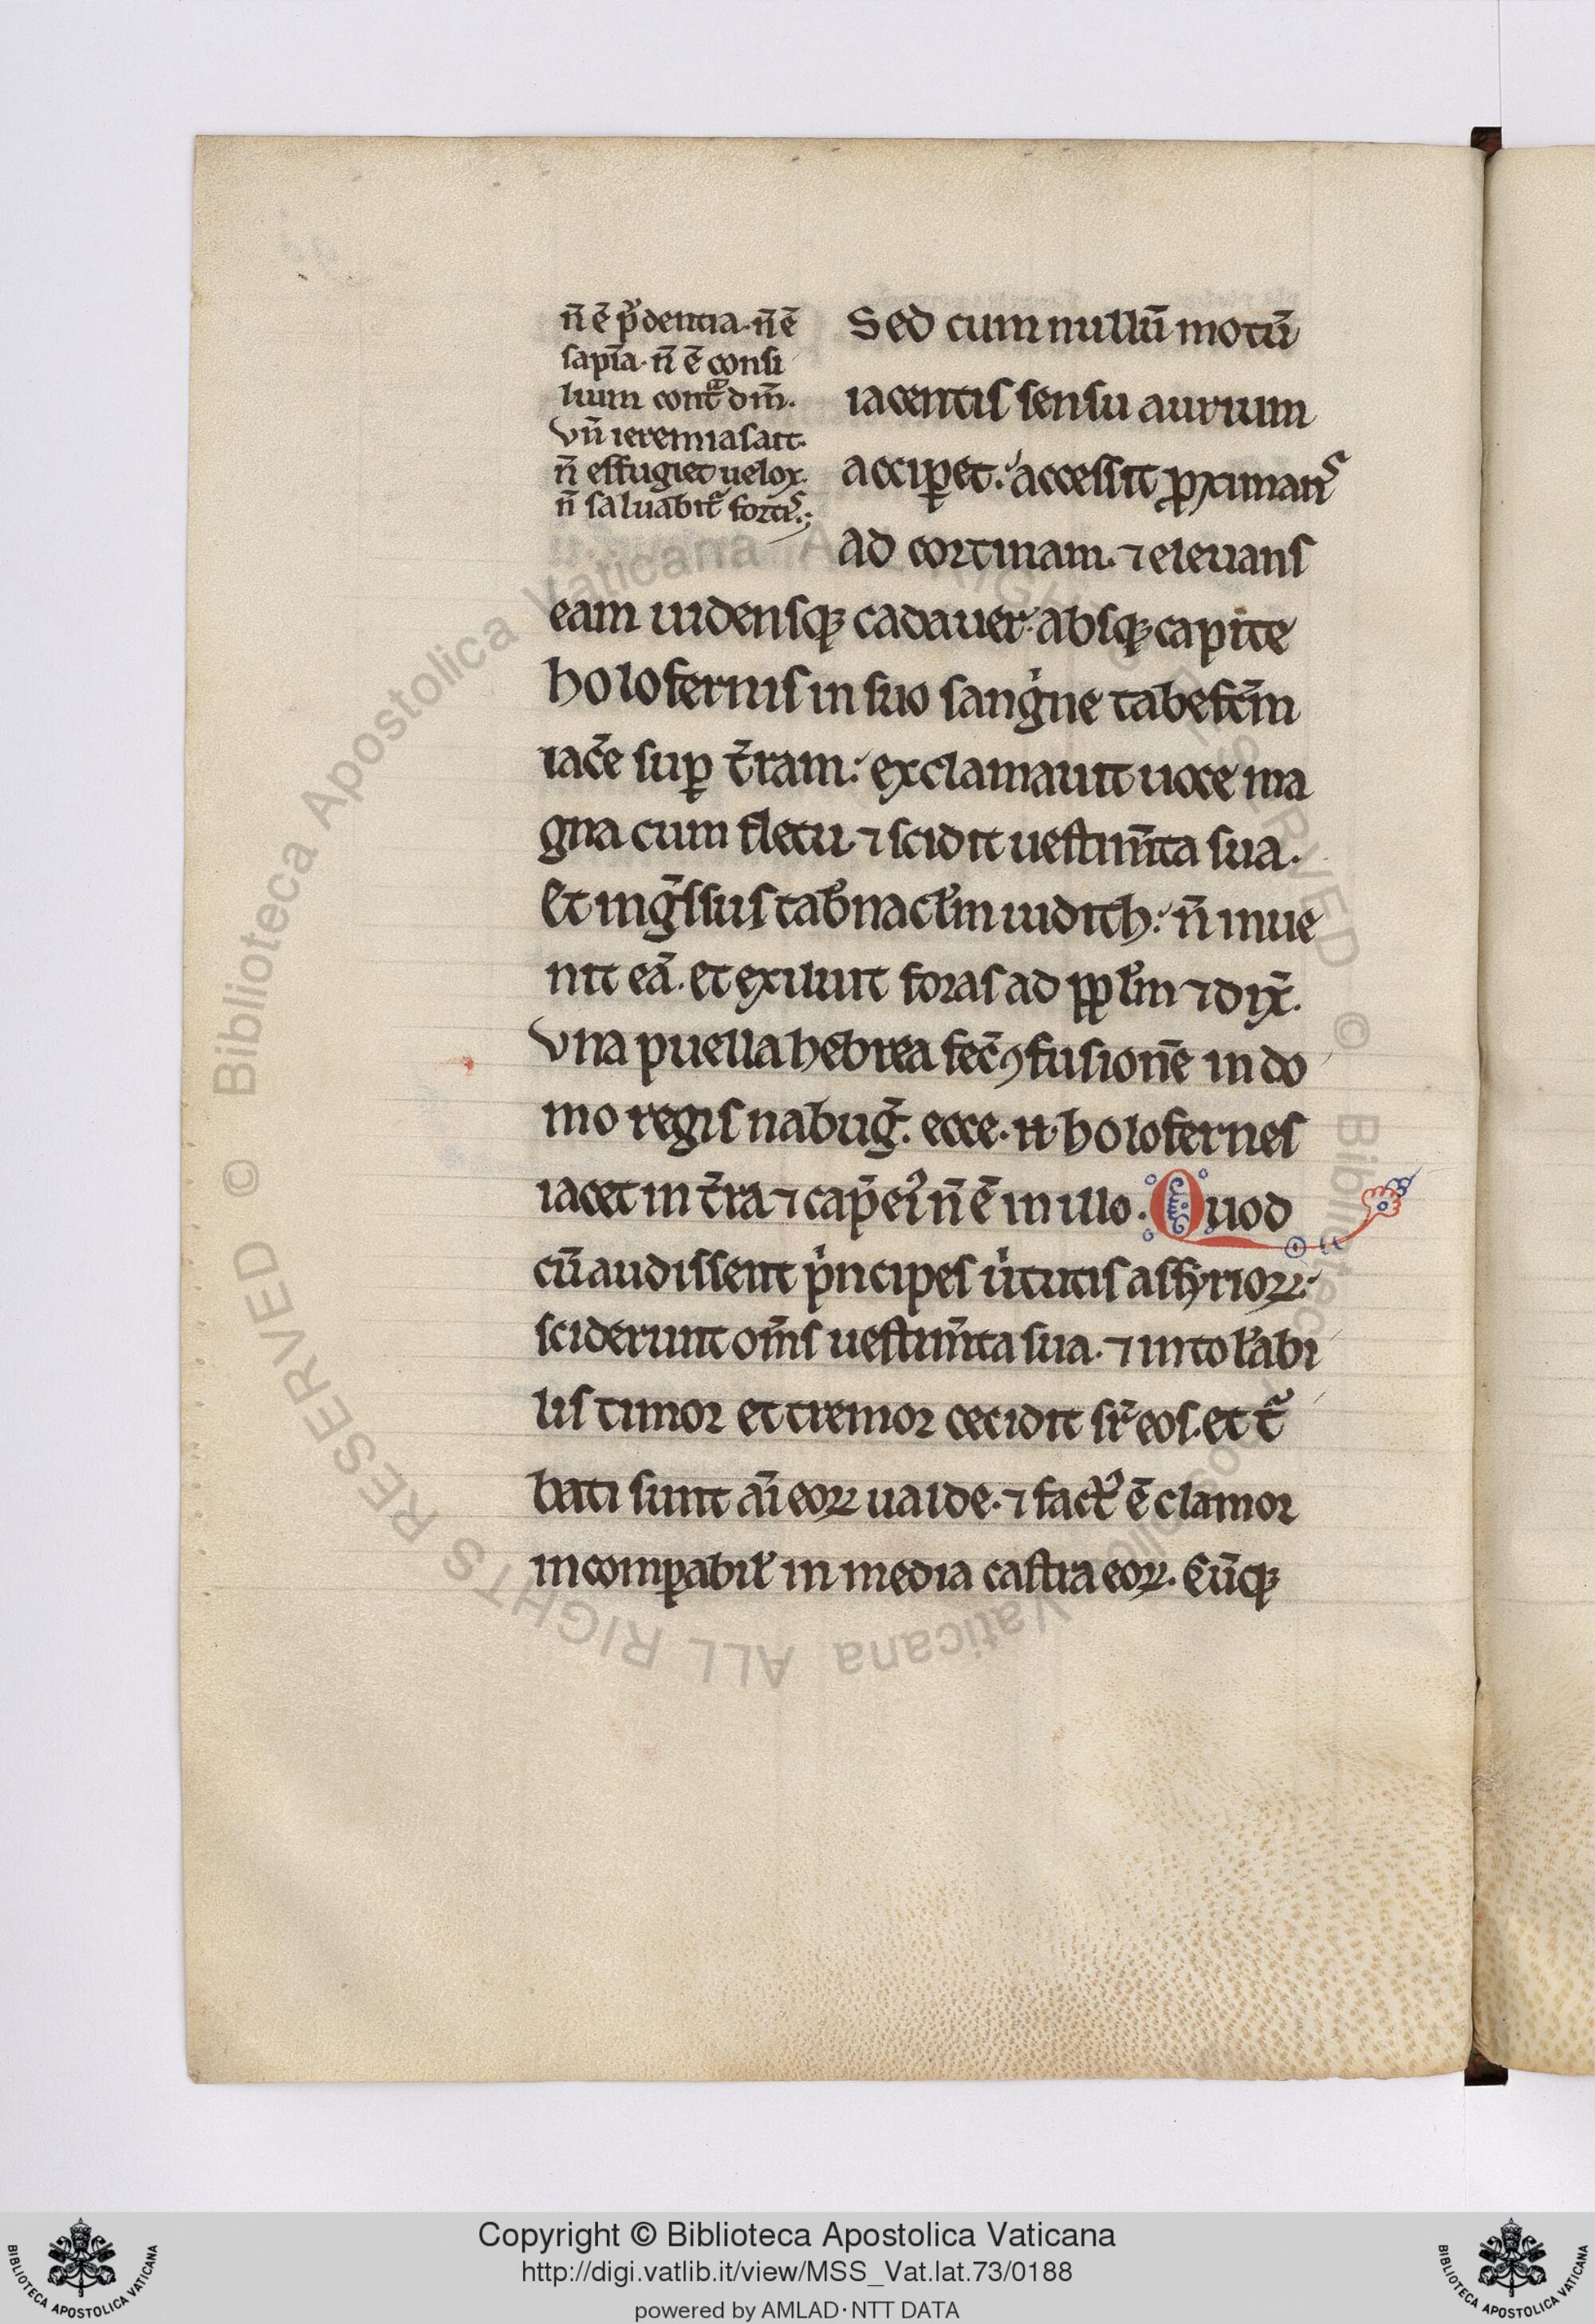 n̄ ē p̄dentia. n̄ ē
sapīa. n̄ ē consi
lium contᵃ dm̄.
Vn̄ ieremias ait.
n̄ effugiet uelox.
n̄ saluabit᷑ fortis.;
Sed cum nullū motū
iacentis sensu aurium
accip̄et. accessit ꝓximans
ad cortinam. ⁊ eleuans
eam uidensqꝫ cadauer absqꝫ capite
holofernis in suo sangͥne tabefc̄m
iac̄e suꝑ t̄ram. exclamauit uoce ma
gna cum fletu. ⁊ scidit uestim̄ta sua.
Et inḡssus tab̄nacl̄m iudith. n̄ inue
nit eā. et exiluit foras ad ppl̄m ⁊ dix̄.
Vna puella hebrea fec̄ ꝯfusionē in do
mo regis nabuḡ. ecce. n. holofernes
iacet in t̄ra ⁊ cap̄ eiꝰ n̄ ē in illo. Quod
cū audissent pͥncipes uͥtutis assyrioꝝ.
sciderunt om̄s uestim̄ta sua. ⁊ intol̄abi
lis timor et tremor cecidit sr̄ eos. et t᷑
bati sunt aī eoꝝ ualde. ⁊ factꝰ ē clamor
incomꝑabil̄ in media castra eoꝝ. Cūqꝫ
© Biblioteca Apostolica Vaticana ALL RIGHTS RESERVED © Biblioteca Apostolica Vaticana ALL RIGHTS RESERVED
Copyright © Biblioteca Apostolica Vaticana
http://digi.vatlib.it/view/MSS_Vat.lat.73/0188
powered by AMLAD·NTT DATA
BIBLIOTECA APOSTOLICA VATICANA
BIBLIOTECA APOSTOLICA VATICANA